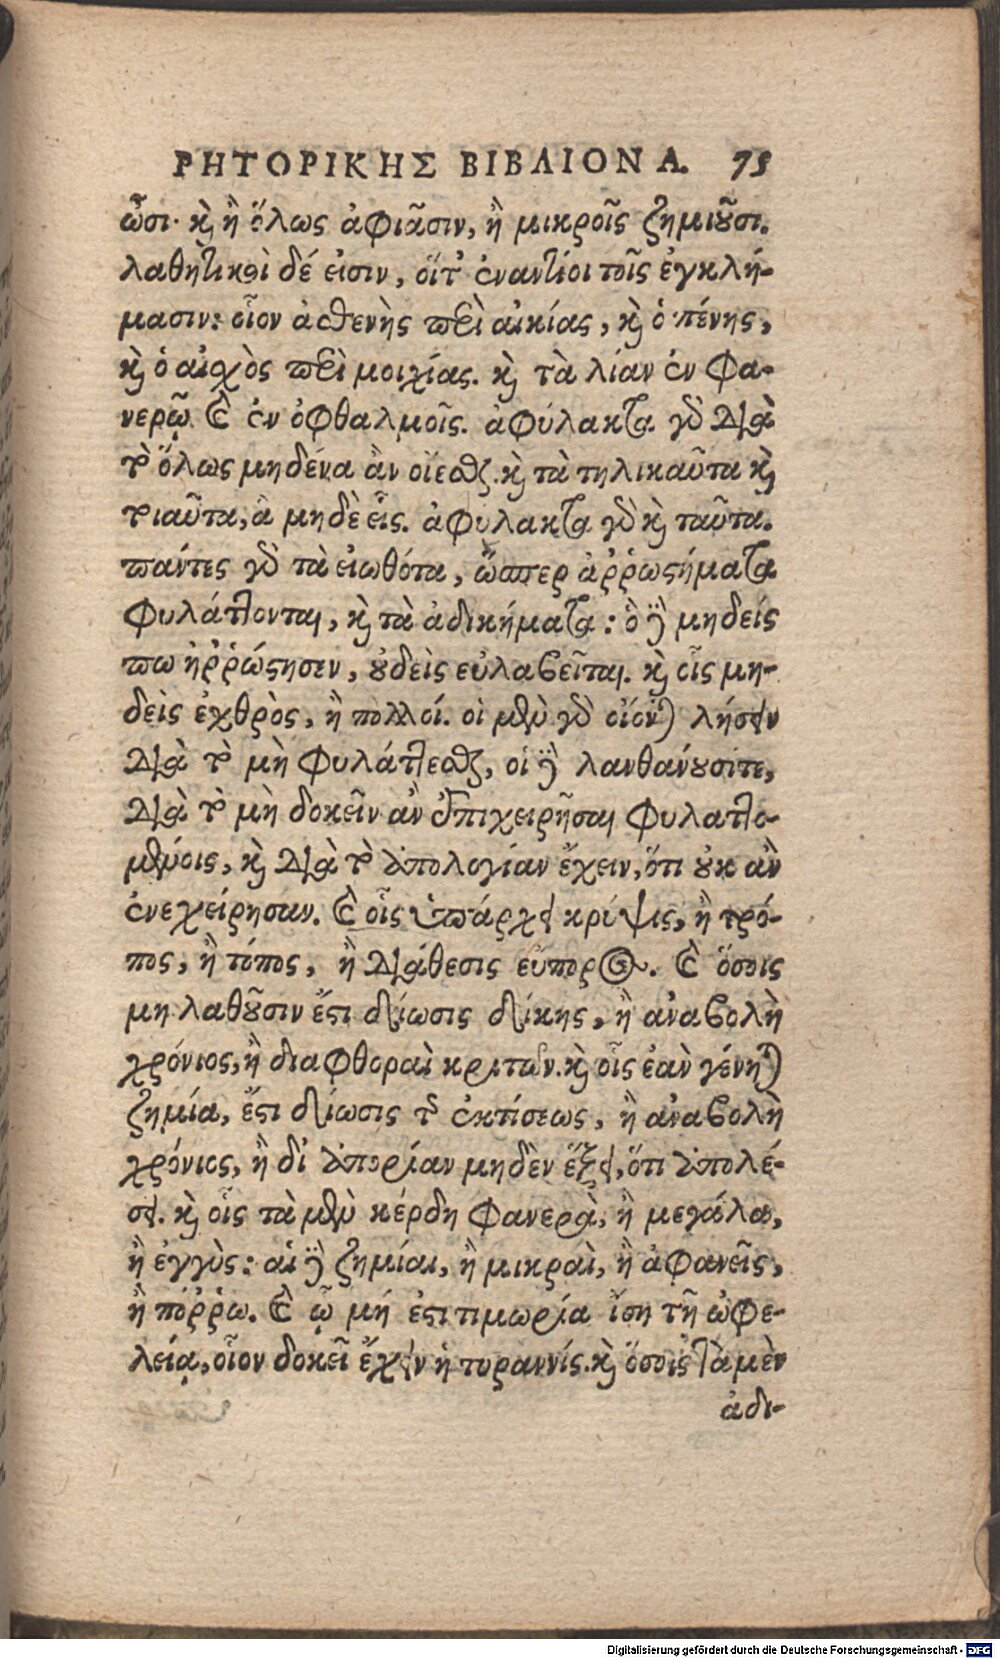 ΡΗΤΟΡΙΚΗΣ ΒΙΒΛΙΟΝ Α. 75
ὦσι· καὶ ἢ ὅλως ἀφιᾶσιν, ἢ μικροῖς ζημιοῦσι.
λαθητικοὶ δέ εἰσιν, οἵτ' ἐναντίοι τοῖς ἐγκλή-
μασιν: οἷον ἀσθενὴς περὶ αἰκίας, καὶ ὁ πένης,
καὶ ὁ αἰσχρὸς περὶ μοιχίας. καὶ τὰ λίαν ἐν φα-
νερῷ καὶ ἐν ὀφθαλμοῖς. ἀφύλακτα γὰρ διὰ
τὸ ὅλως μηδένα ἂν οἴεσθαι. καὶ τὰ τηλικαῦτα καὶ
τοιαῦτα, ἃ μηδὲ εἷς. ἀφύλακτα γὰρ καὶ ταῦτα.
πάντες γὰρ τὰ εἰωθότα, ὥσπερ ἀῤῥωστήματα
φυλάττονται, καὶ τὰ ἀδικήματα: ὃ δὲ μηδείς
πω ἠῤῥώστησεν, οὐδεὶς εὐλαβεῖται. καὶ οἷς μη-
δεὶς ἐχθρὸς, ἢ πολλοί. οἱ μὲν γὰρ οἴονται λήσειν
διὰ τὸ μὴ φυλάττεσθαι, οἱ δὲ λανθάνουσίτε,
διὰ τὸ μὴ δοκεῖν ἂν ἐπιχειρῆσαι φυλαττο-
μένοις, καὶ διὰ τὸ ἀπολογίαν ἔχειν, ὅτι οὐκ ἂν
ἐνεχείρησαν. καὶ οἷς ὑπάρχει κρύψις, ἢ τρό-
πος, ἢ τόπος, ἢ διάθεσις εὔπορος. καὶ ὅσοις
μὴ λαθοῦσιν ἔστι δίωσις δίκης, ἢ ἀναβολὴ
χρόνιος, ἢ διαφθοραὶ κριτῶν. καὶ οἷς ἐὰν γένηται
ζημία, ἔστι δίωσις τῆς ἐκτίσεως, ἢ ἀναβολὴ
χρόνιος, ἢ δι' ἀπορίαν μηδὲν ἕξει, ὅτι ἀπολέ-
σει. καὶ οἷς τὰ μὲν κέρδη φανερὰ, ἢ μεγάλα,
ἢ ἐγγὺς: αἱ δὲ ζημίαι, ἢ μικραὶ, ἢ ἀφανεῖς,
ἢ πόῤῥω. καὶ ᾧ μή ἐστι τιμωρία ἴση τῇ ὠφε-
λείᾳ, οἷον δοκεῖ ἔχειν ἡ τυραννίς. καὶ ὅσοις τὰ μὲν
ἀδι-
Digitalisierung gefördert durch die Deutsche Forschungsgemeinschaft - DFG